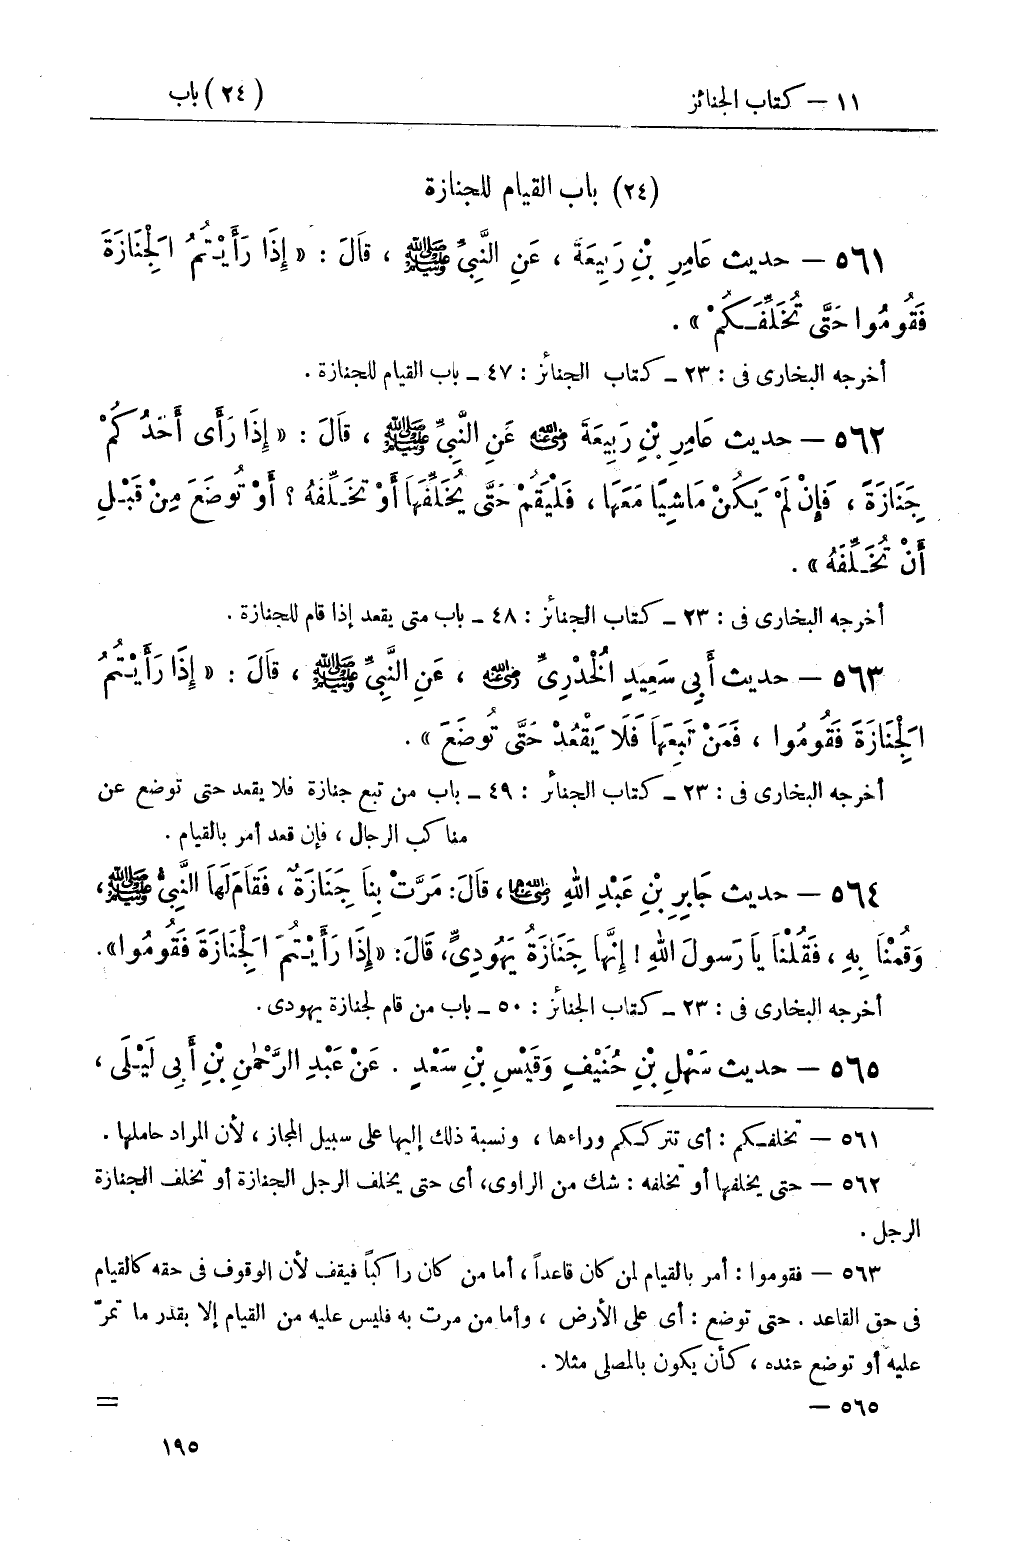 ١١ – كتاب الجنائز (٢٤) باب
(٢٤) باب القيام للجنازة
٥٦١ – حديث عَامِرِ بْنِ رَبِيعَةَ ، عَنِ النَّبِيِّ ﷺ ، قَالَ : « إِذَا رَأَيْتُمُ الْجِنَازَةَ
فَقُومُوا حَتَّى تُخَلِّفَكُمْ » .
أخرجه البخارى فى : ٢٣ ـ كتاب الجنائز : ٤٧ ـ باب القيام للجنازة .
٥٦٢ – حديث عَامِرِ بْنِ رَبِيعَةَ رضي الله عنه عَنِ النَّبِيِّ ﷺ ، قَالَ : « إِذَا رَأَى أَحَدُكُمْ
جِنَازَةً ، فَإِنْ لَمْ يَكُنْ مَاشِيًا مَعَهَا ، فَلْيَقُمْ حَتَّى يُخَلِّفَهَا أَوْ تُخَلِّفَهُ ؟ أَوْ تُوضَعَ مِنْ قَبْلِ
أَنْ تُخَلِّفَهُ » .
أخرجه البخارى فى : ٢٣ ـ كتاب الجنائز : ٤٨ ـ باب متى يقعد إذا قام للجنازة .
٥٦٣ – حديث أَبِي سَعِيدٍ الْخُدْرِىِّ رضي الله عنه ، عَنِ النَّبِيِّ ﷺ ، قَالَ : « إِذَا رَأَيْتُمُ
الْجِنَازَةَ فَقُومُوا ، فَمَنْ تَبِعَهَا فَلَا يَقْعُدْ حَتَّى تُوضَعَ » .
أخرجه البخارى فى : ٢٣ ـ كتاب الجنائز : ٤٩ ـ باب من تبع جنازة فلا يقعد حتى توضع عن
مناكب الرجال ، فإن قعد أمر بالقيام .
٥٦٤ – حديث جَابِرِ بْنِ عَبْدِ اللهِ رضي الله عنهما ، قَالَ: مَرَّتْ بِنَا جِنَازَةٌ ، فَقَامَ لَهَا النَّبِىُّ ﷺ ،
وَقُمْنَا بِهِ ، فَقُلْنَا يَا رَسُولَ اللهِ ! إِنَّهَا جِنَازَةُ يَهُودِىٍّ، قَالَ: «إِذَا رَأَيْتُمَ الْجِنَازَةَ فَقُومُوا».
أخرجه البخارى فى : ٢٣ ـ كتاب الجنائز : ٥٠ ـ باب من قام لجنازة يهودى.
٥٦٥ – حديث سَهْلِ بْنِ حُنَيْفٍ وَقَيْسِ بْنِ سَعْدٍ . عَنْ عَبْدِ الرَّحْمٰنِ بْنِ أَبِى لَيْلَى ،
٥٦١ – تخلفكم : أى تترككم وراءها ، ونسبة ذلك إليها على سبيل المجاز ، لأن المراد حاملها .
٥٦٢ – حتى يخلفها أو تخلفه : شك من الراوى، أى حتى يخلف الرجل الجنازة أو تخلف الجنازة
الرجل .
٥٦٣ – فقوموا : أمر بالقيام لمن كان قاعداً ، أما من كان راكباً فيقف لأن الوقوف فى حقه كالقيام
فى حق القاعد . حتى توضع : أى على الأرض ، وأما من مرت به فليس عليه من القيام إلا بقدر ما تمرّ
عليه أو توضع عنده ، كأن يكون بالمصلى مثلا .
٥٦٥ – =
١٩٥